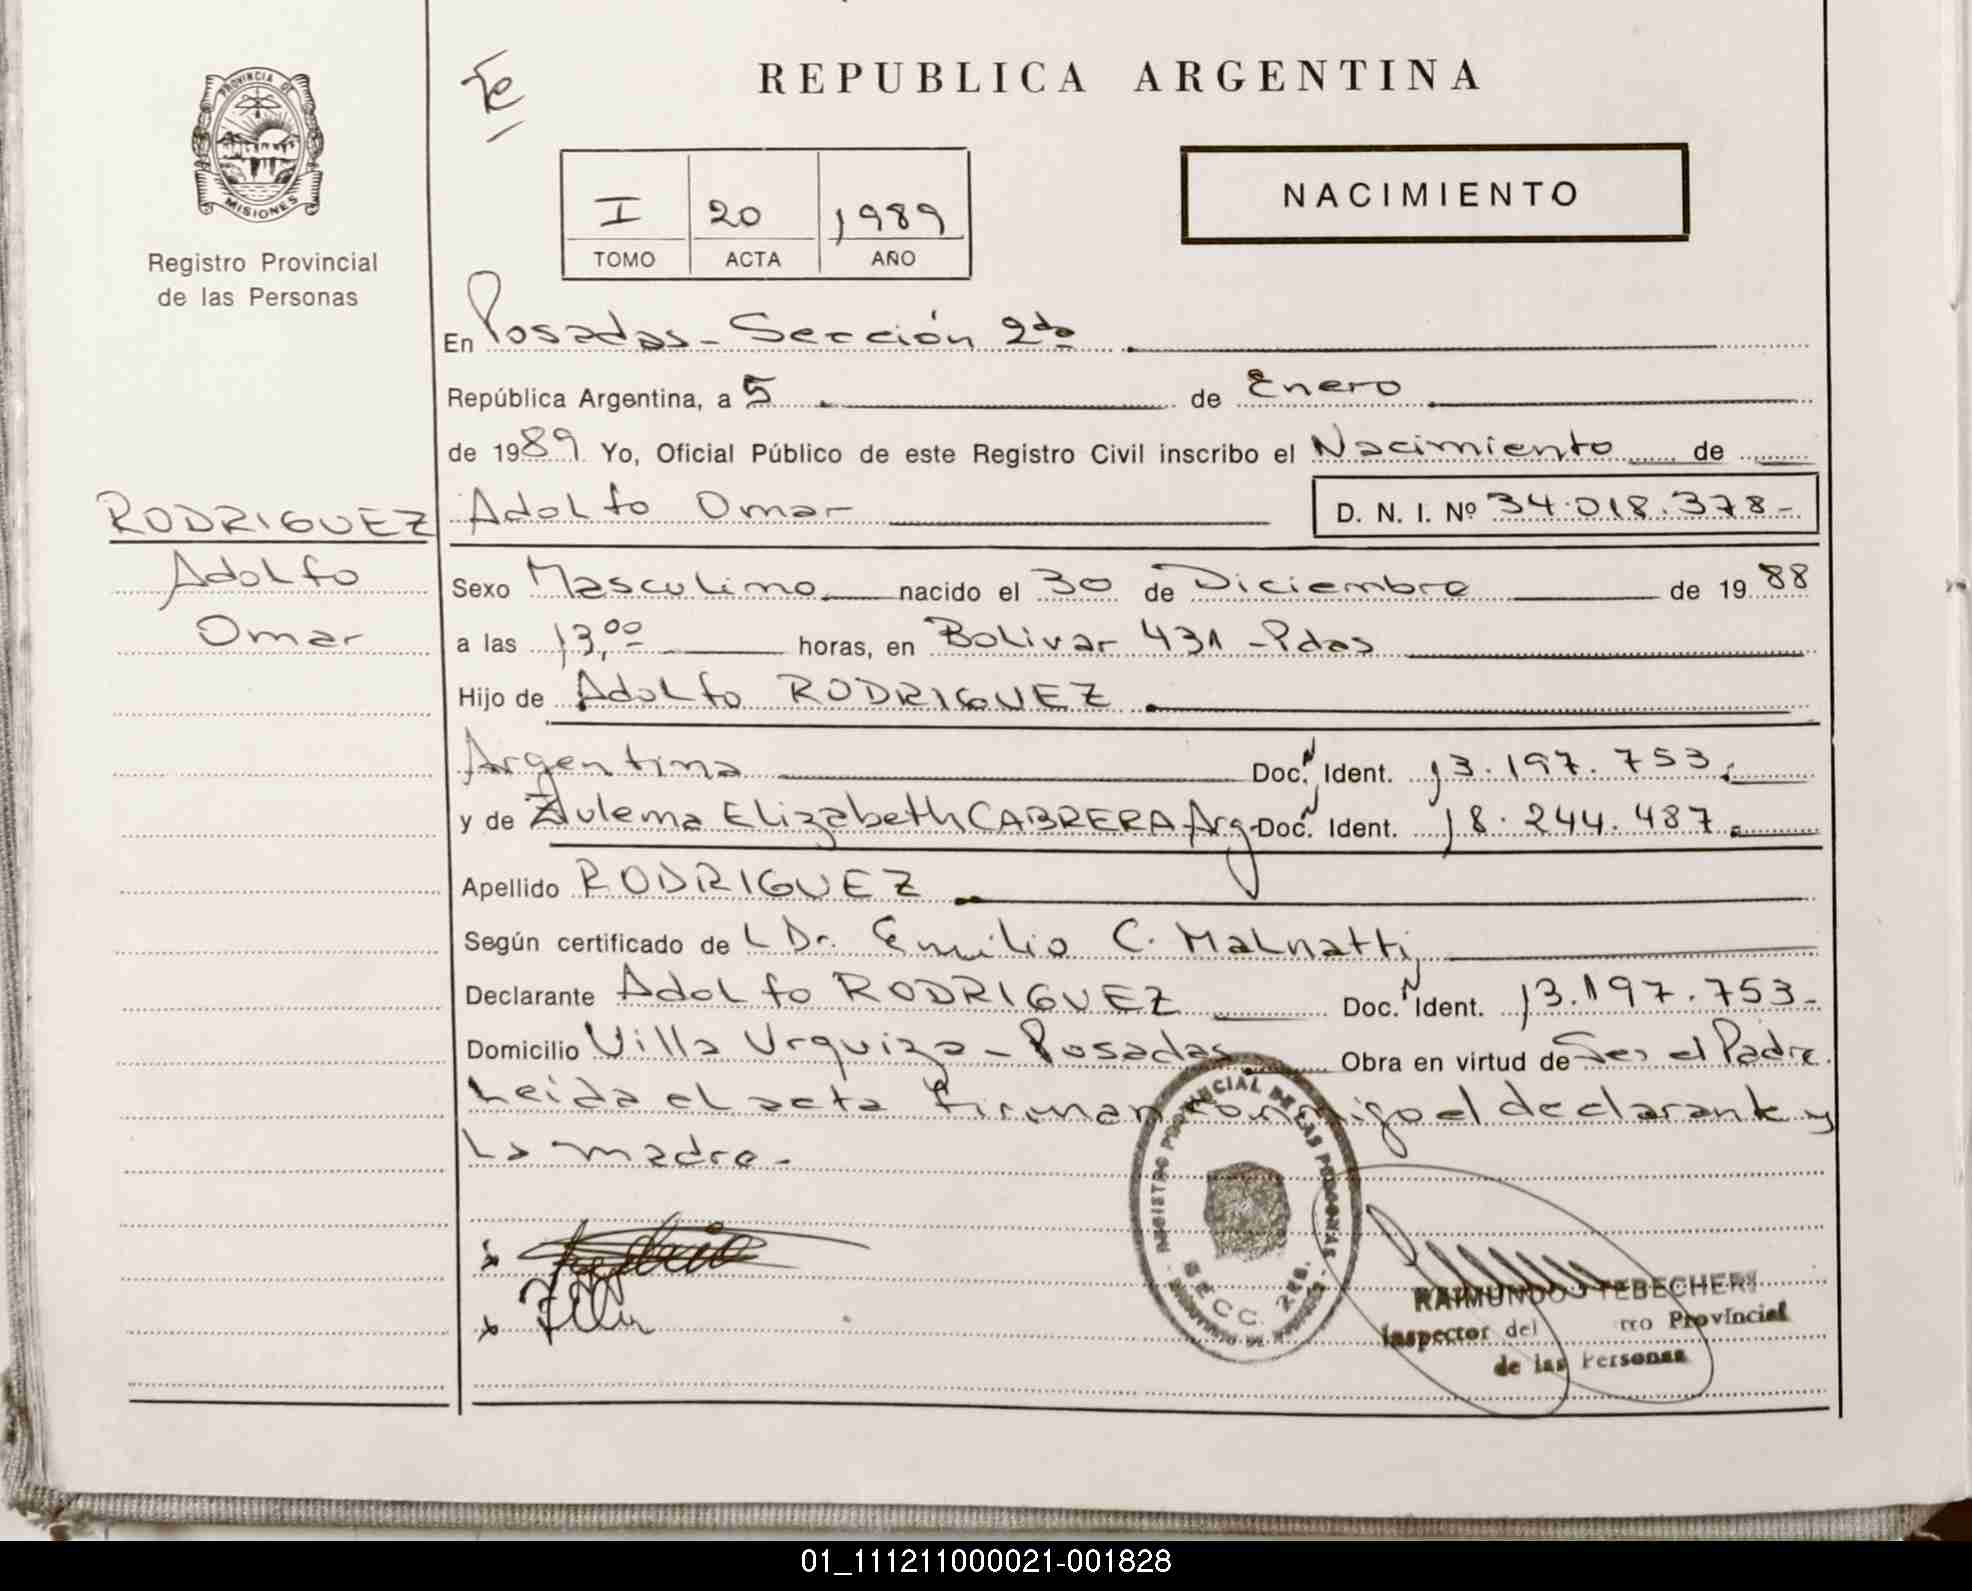 PROVINCIA DE
MISIONES
Registro Provincial
de las Personas
REPUBLICA ARGENTINA
NACIMIENTO
I 20 1989
TOMO ACTA AÑO
En Posadas - Sección 2da
República Argentina, a 5 de Enero
de 1989 Yo, Oficial Público de este Registro Civil inscribo el Nacimiento de
RODRIGUEZ Adolfo Omar D. N. I. Nº 34.018.378-
Adolfo
Omar
Sexo Masculino nacido el 30 de Diciembre de 1988
a las 13,00 horas, en Bolivar 431 - Pdas
Hijo de Adolfo RODRIGUEZ
Argentina Doc. Ident. 13.197.753
y de Zulema Elizabeth CABRERA Arg. Doc. Ident. 18.244.487
Apellido RODRIGUEZ
Según certificado de L Dr. Emilio C. Malnatti
Declarante Adolfo RODRIGUEZ Doc. Ident. 13.197.753-
Domicilio Villa Urquiza - Posadas Obra en virtud de Ser el Padre.
Leida el acta firman conmigo el declarante y
La madre.-
REGISTRO PROVINCIAL DE LAS PERSONAS
SECC. 2da.
RAIMUNDO TEBECHERI
Inspector del Provincial
de las Personas
01_111211000021-001828